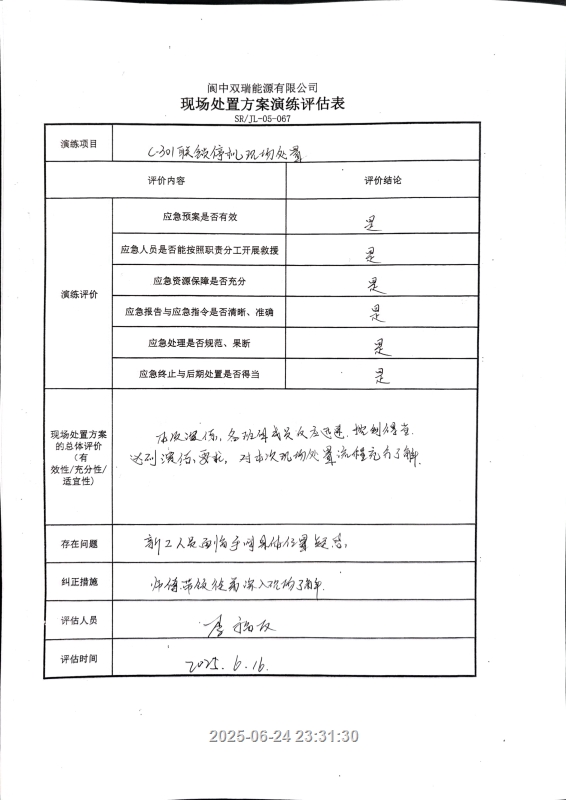 阆中双瑞能源有限公司
现场处置方案演练评估表
SR/JL-05-067
演练项目
C-301联锁停机现场处置
评价内容
评价结论
演练评价
应急预案是否有效
是
应急人员是否能按照职责分工开展救援
是
应急资源保障是否充分
是
应急报告与应急指令是否清晰、准确
是
应急处理是否规范、果断
是
应急终止与后期处置是否得当
是
现场处置方案
的总体评价
(有
效性/充分性/
适宜性)
本次演练，各班组成员反应迅速，
达到演练要求，对本次现场处置流程充分了解
存在问题
新工人员对 具体位置疑惑。
纠正措施
师傅带领徒弟深入现场了解
评估人员
李
评估时间
2025.6.16.
2025-06-24 23:31:30